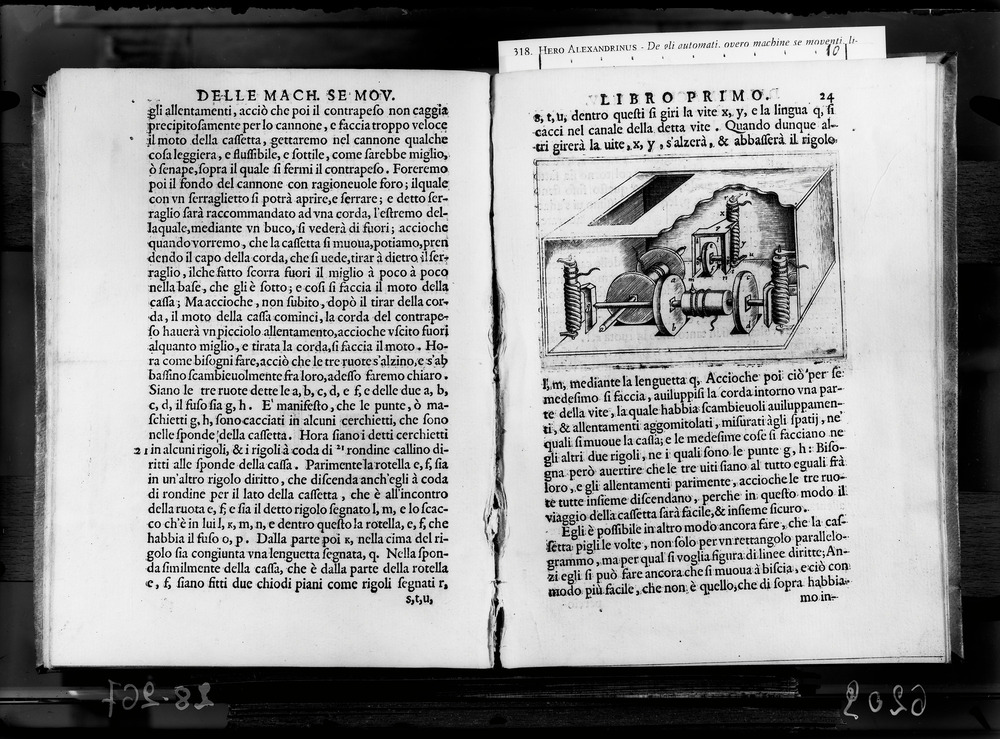 318. HERO ALEXANDRINUS - De gli automati, overo machine se moventi, li-
10
DELLE MACH. SE MOV.
gli allentamenti, acciò che poi il contrapeſo non caggia
precipitoſamente per lo cannone, e faccia troppo veloce
il moto della caſſetta, gettaremo nel cannone qualche
coſa leggiera, e fluſſibile, e ſottile, come ſarebbe miglio,
ò ſenape, ſopra il quale ſi fermi il contrapeſo. Foreremo
poi il fondo del cannone con ragioneuole foro; ilquale
con vn ſerraglietto ſi potrà aprire, e ſerrare; e detto ſer-
raglio ſarà raccommandato ad vna corda, l'eſtremo del-
laquale, mediante vn buco, ſi vederà di fuori; accioche
quando vorremo, che la caſſetta ſi muoua, potiamo, pren
dendo il capo della corda, che ſi uede, tirar à dietro il ſer-
raglio, ilche fatto ſcorra fuori il miglio à poco à poco
nella baſe, che gli è ſotto; e coſi ſi faccia il moto della
caſſa; Ma accioche, non ſubito, dopò il tirar della cor-
da, il moto della caſſa cominci, la corda del contrape-
ſo hauerà vn picciolo allentamento, accioche vſcito fuori
alquanto miglio, e tirata la corda, ſi faccia il moto. Ho-
ra come biſogni fare, acciò che le tre ruote s'alzino, e s'ab
baſſino ſcambieuolmente fra loro, adeſſo faremo chiaro.
Siano le tre ruote dette le a, b, c, d, e f, e delle due a, b,
c, d, il fuſo ſia g, h. E' manifeſto, che le punte, ò ma-
ſchietti g, h, ſono cacciati in alcuni cerchietti, che ſono
nelle ſponde della caſſetta. Hora ſiano i detti cerchietti
21 in alcuni rigoli, & i rigoli à coda di 21 rondine callino di-
ritti alle ſponde della caſſa. Parimente la rotella e, f, ſia
in un'altro rigolo diritto, che diſcenda anch'egli à coda
di rondine per il lato della caſſetta, che è all'incontro
della ruota e, f, e ſia il detto rigolo ſegnato l, m, e lo ſcac-
co ch'è in lui l, κ, m, n, e dentro queſto la rotella, e, f, che
habbia il fuſo o, p. Dalla parte poi κ, nella cima del ri-
golo ſia congiunta vna lenguetta ſegnata, q. Nella ſpon-
da ſimilmente della caſſa, che è dalla parte della rotella
e, f, ſiano fitti due chiodi piani come rigoli ſegnati r,
s, t, u,
LIBRO PRIMO. 24
s, t, u, dentro queſti ſi giri la vite x, y, e la lingua q, ſi
cacci nel canale della detta vite. Quando dunque al-
tri girerà la uite, x, y, s'alzerà, & abbaſſerà il rigolo
l, m, mediante la lenguetta q, Accioche poi ciò per ſe
medeſimo ſi faccia, auiluppiſi la corda intorno vna par-
te della vite, la quale habbia ſcambieuoli auiluppamen-
ti, & allentamenti aggomitolati, miſurati àgli ſpatij, ne
quali ſi muoue la caſſa; e le medeſime coſe ſi facciano ne
gli altri due rigoli, ne i quali ſono le punte g, h: Biſo-
gna però auertire che le tre uiti ſiano al tutto eguali frà
loro, e gli allentamenti parimente, accioche le tre ruo-
te tutte inſieme diſcendano, perche in queſto modo il
viaggio della caſſetta ſarà facile, & inſieme ſicuro.
Egli è poſſibile in altro modo ancora fare, che la caſ-
ſetta pigli le volte, non ſolo per vn rettangolo parallelo-
grammo, ma per qual ſi voglia figura di linee diritte; An-
zi egli ſi può fare ancora che ſi muoua à biſcia, e ciò con
modo più facile, che non è quello, che di ſopra habbia-
mo in-
28-267
6209